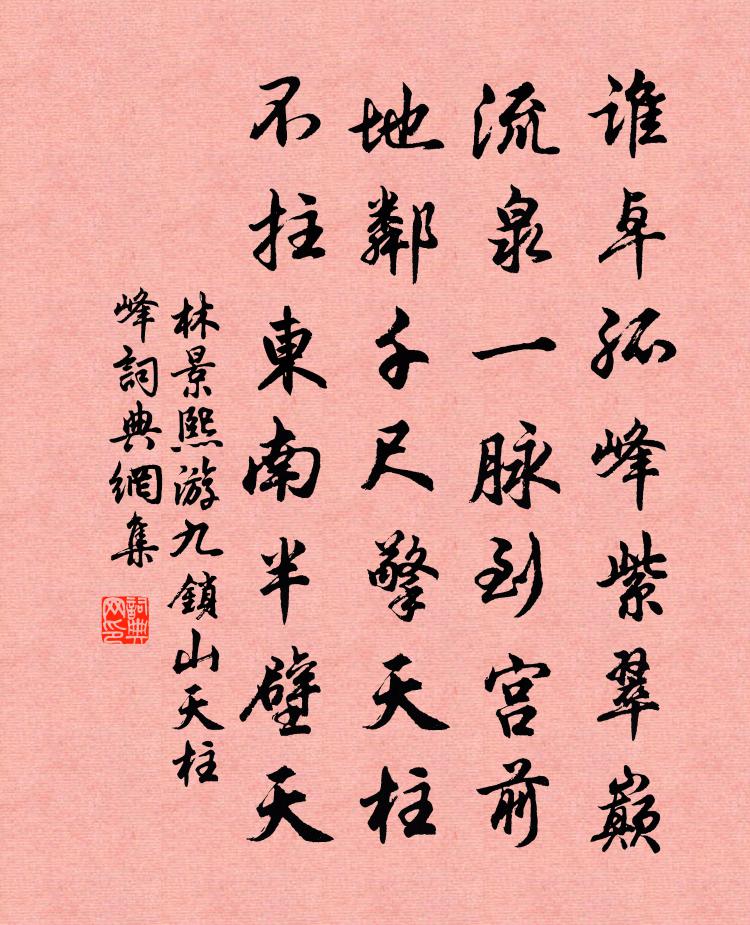 誰卓孤峰紫翠巔
流泉一脉到宫前
地鄰千尺擎天柱
不拄東南半壁天
林景熙游九鎖山天柱
峰詞典網集
詞典网印